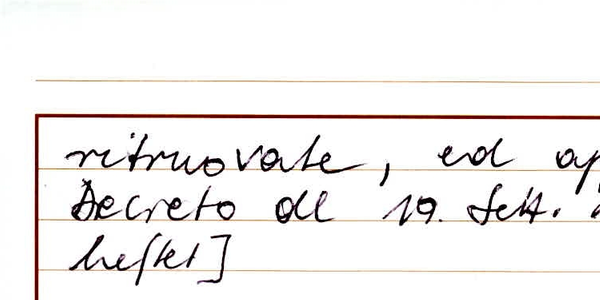 ritruovate, ed ap
Decreto del 19. Sett.
heftet]